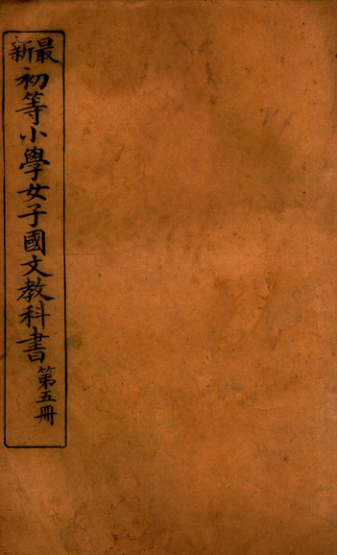 最新初等小學女子國文教科書第五冊